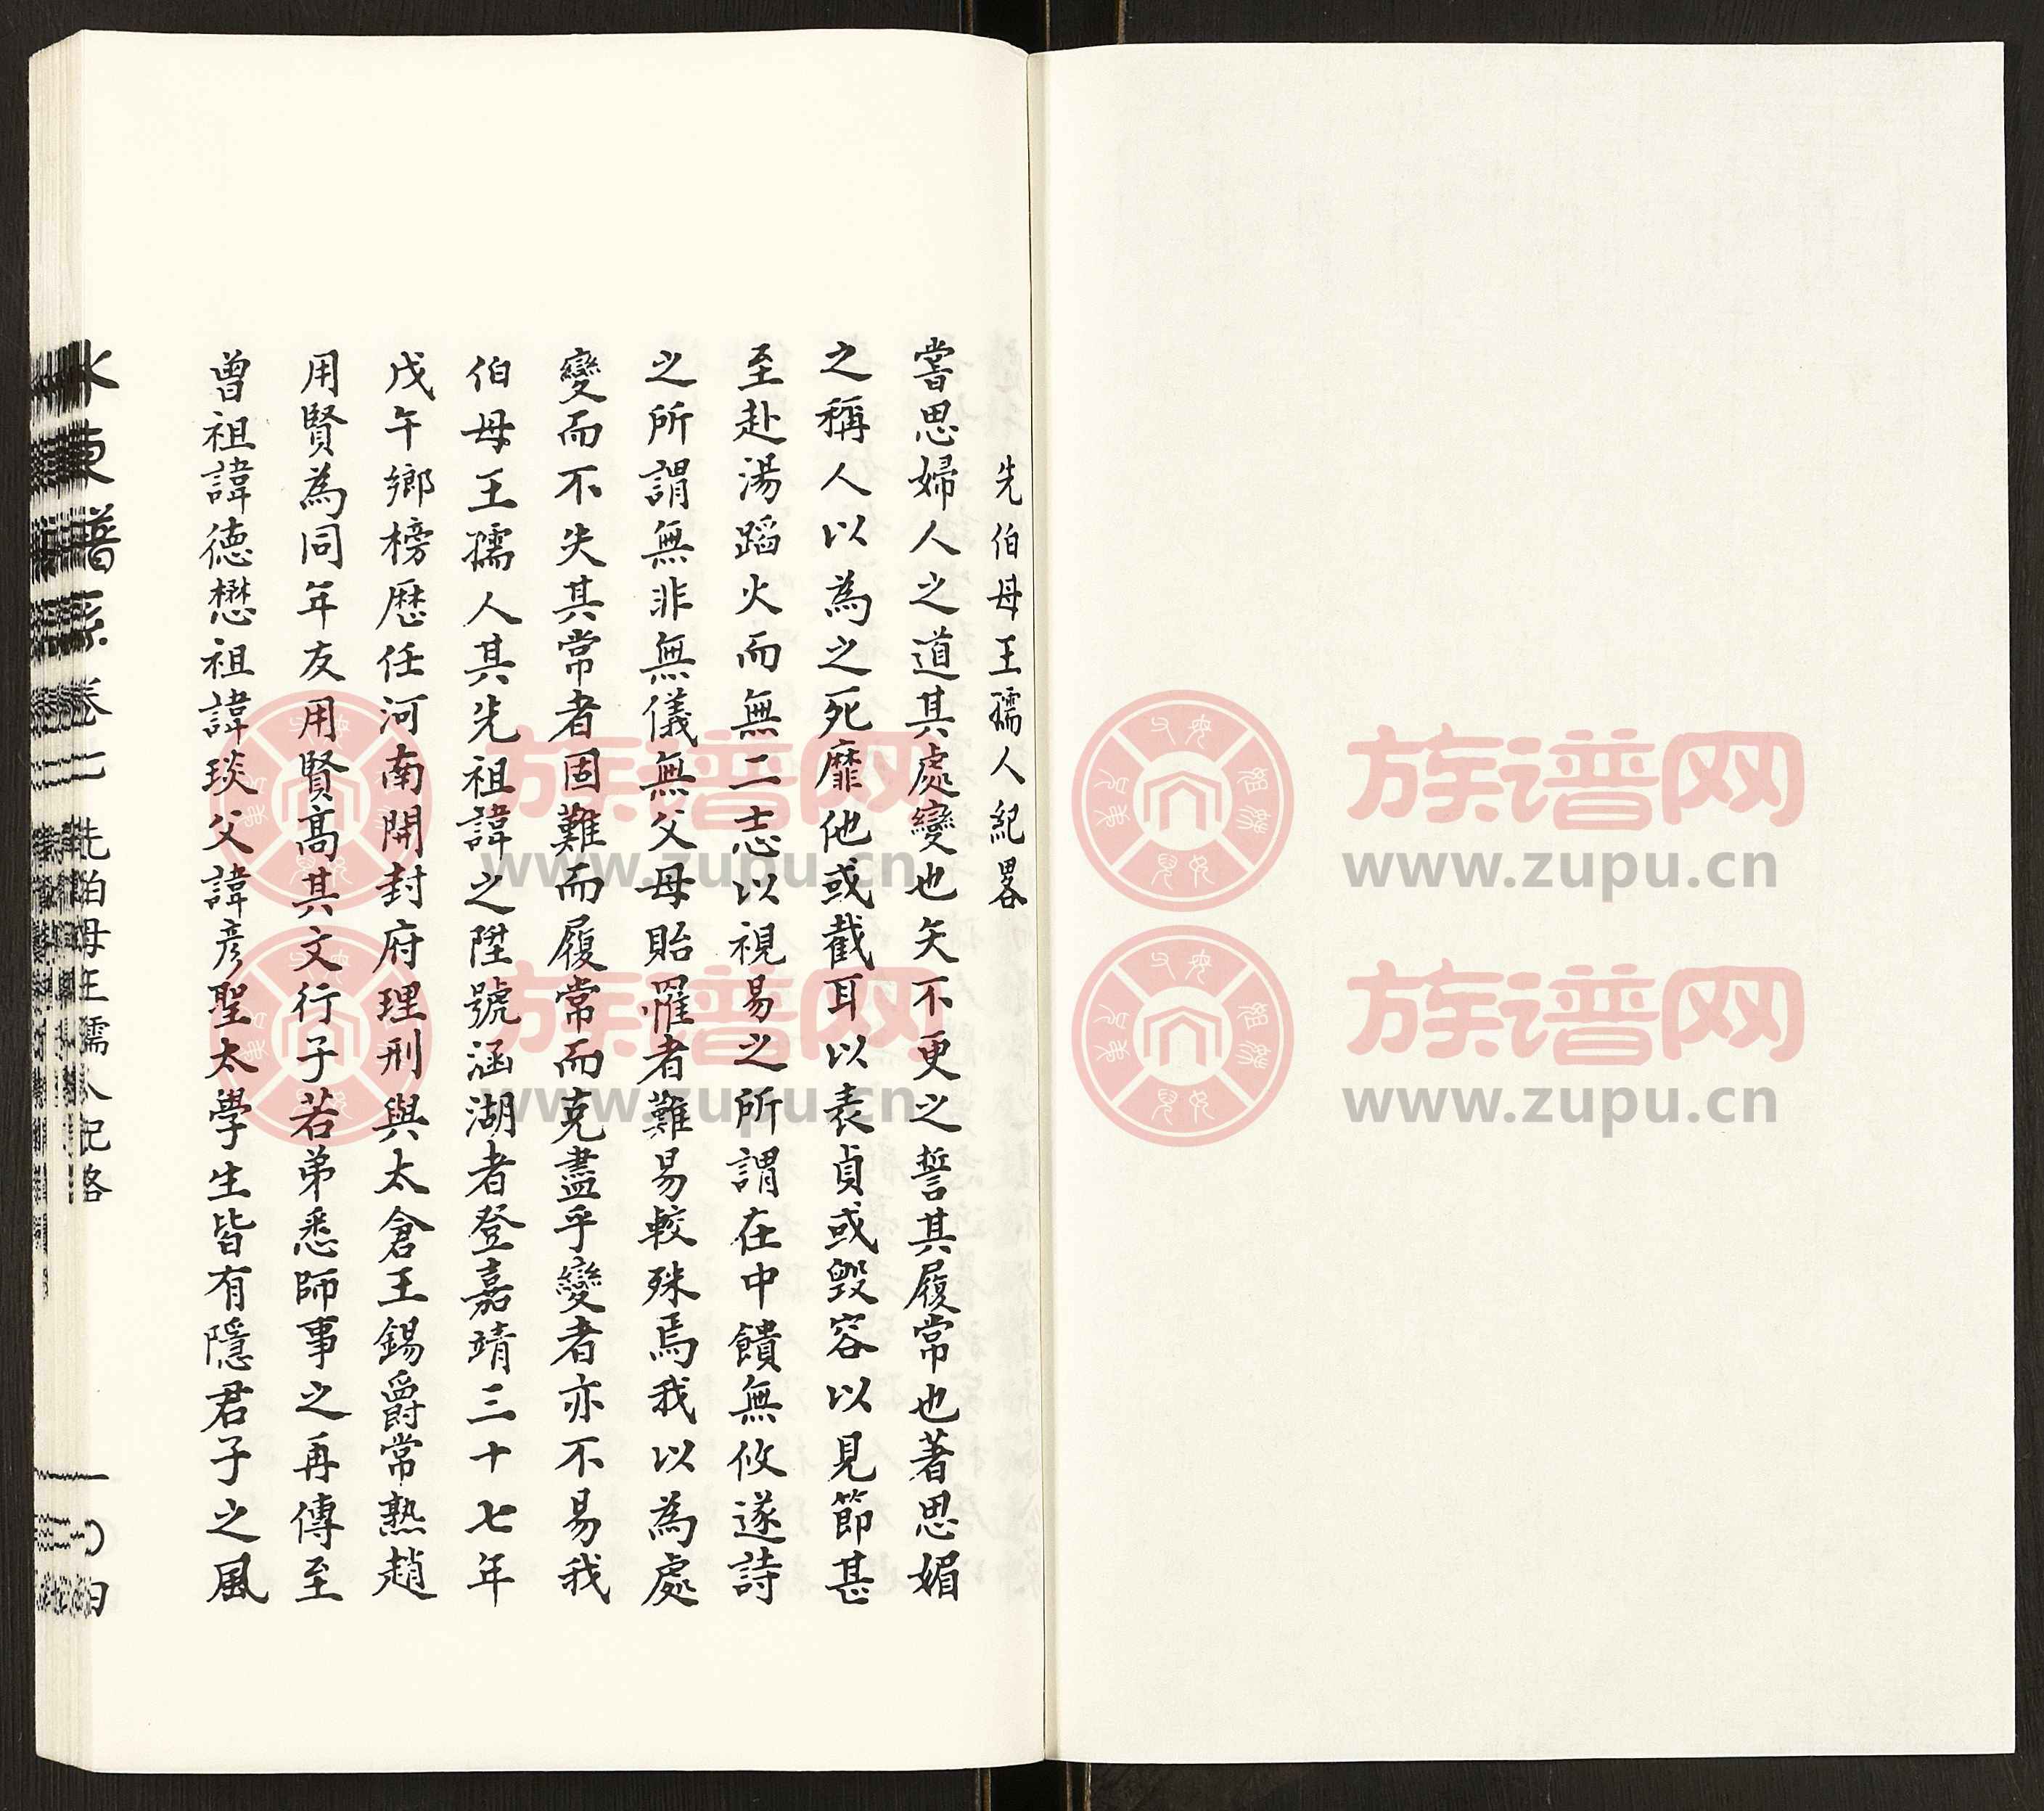 先伯母王孺人紀畧
嘗思婦人之道其處變也矢不更之誓其履常也著思媚
之稱人以為之死靡他或截耳以表貞或毀容以見節甚
至赴湯蹈火而無二志以視易之所謂在中饋無攸遂詩
之所謂無非無儀無父母貽罹者難易較殊焉我以為處
變而不失其常者固難而履常而克盡乎變者亦不易我
伯母王孺人其先祖諱之陞號涵湖者登嘉靖三十七年
戊午鄉榜歷任河南開封府理刑與太倉王錫爵常熟趙
用賢為同年友用賢高其文行子若弟悉師事之再傳至
曾祖諱德懋祖諱琰父諱彦聖太學生皆有隱君子之風
水東譜系卷七 先伯母王孺人記略
族谱网
www.zupu.cn
族谱网
www.zupu.cn
族谱网
www.zupu.cn
族谱网
www.zupu.cn